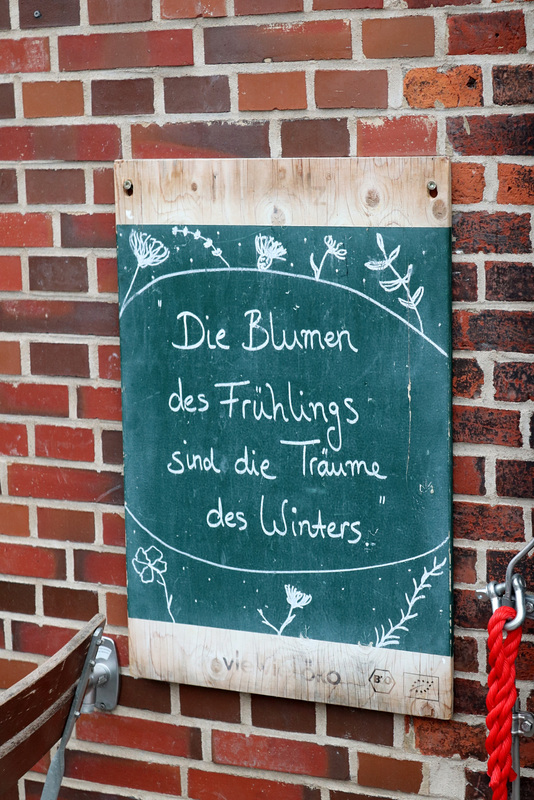 "Die Blumen
des Frühlings
sind die Träume
des Winters."
Bio